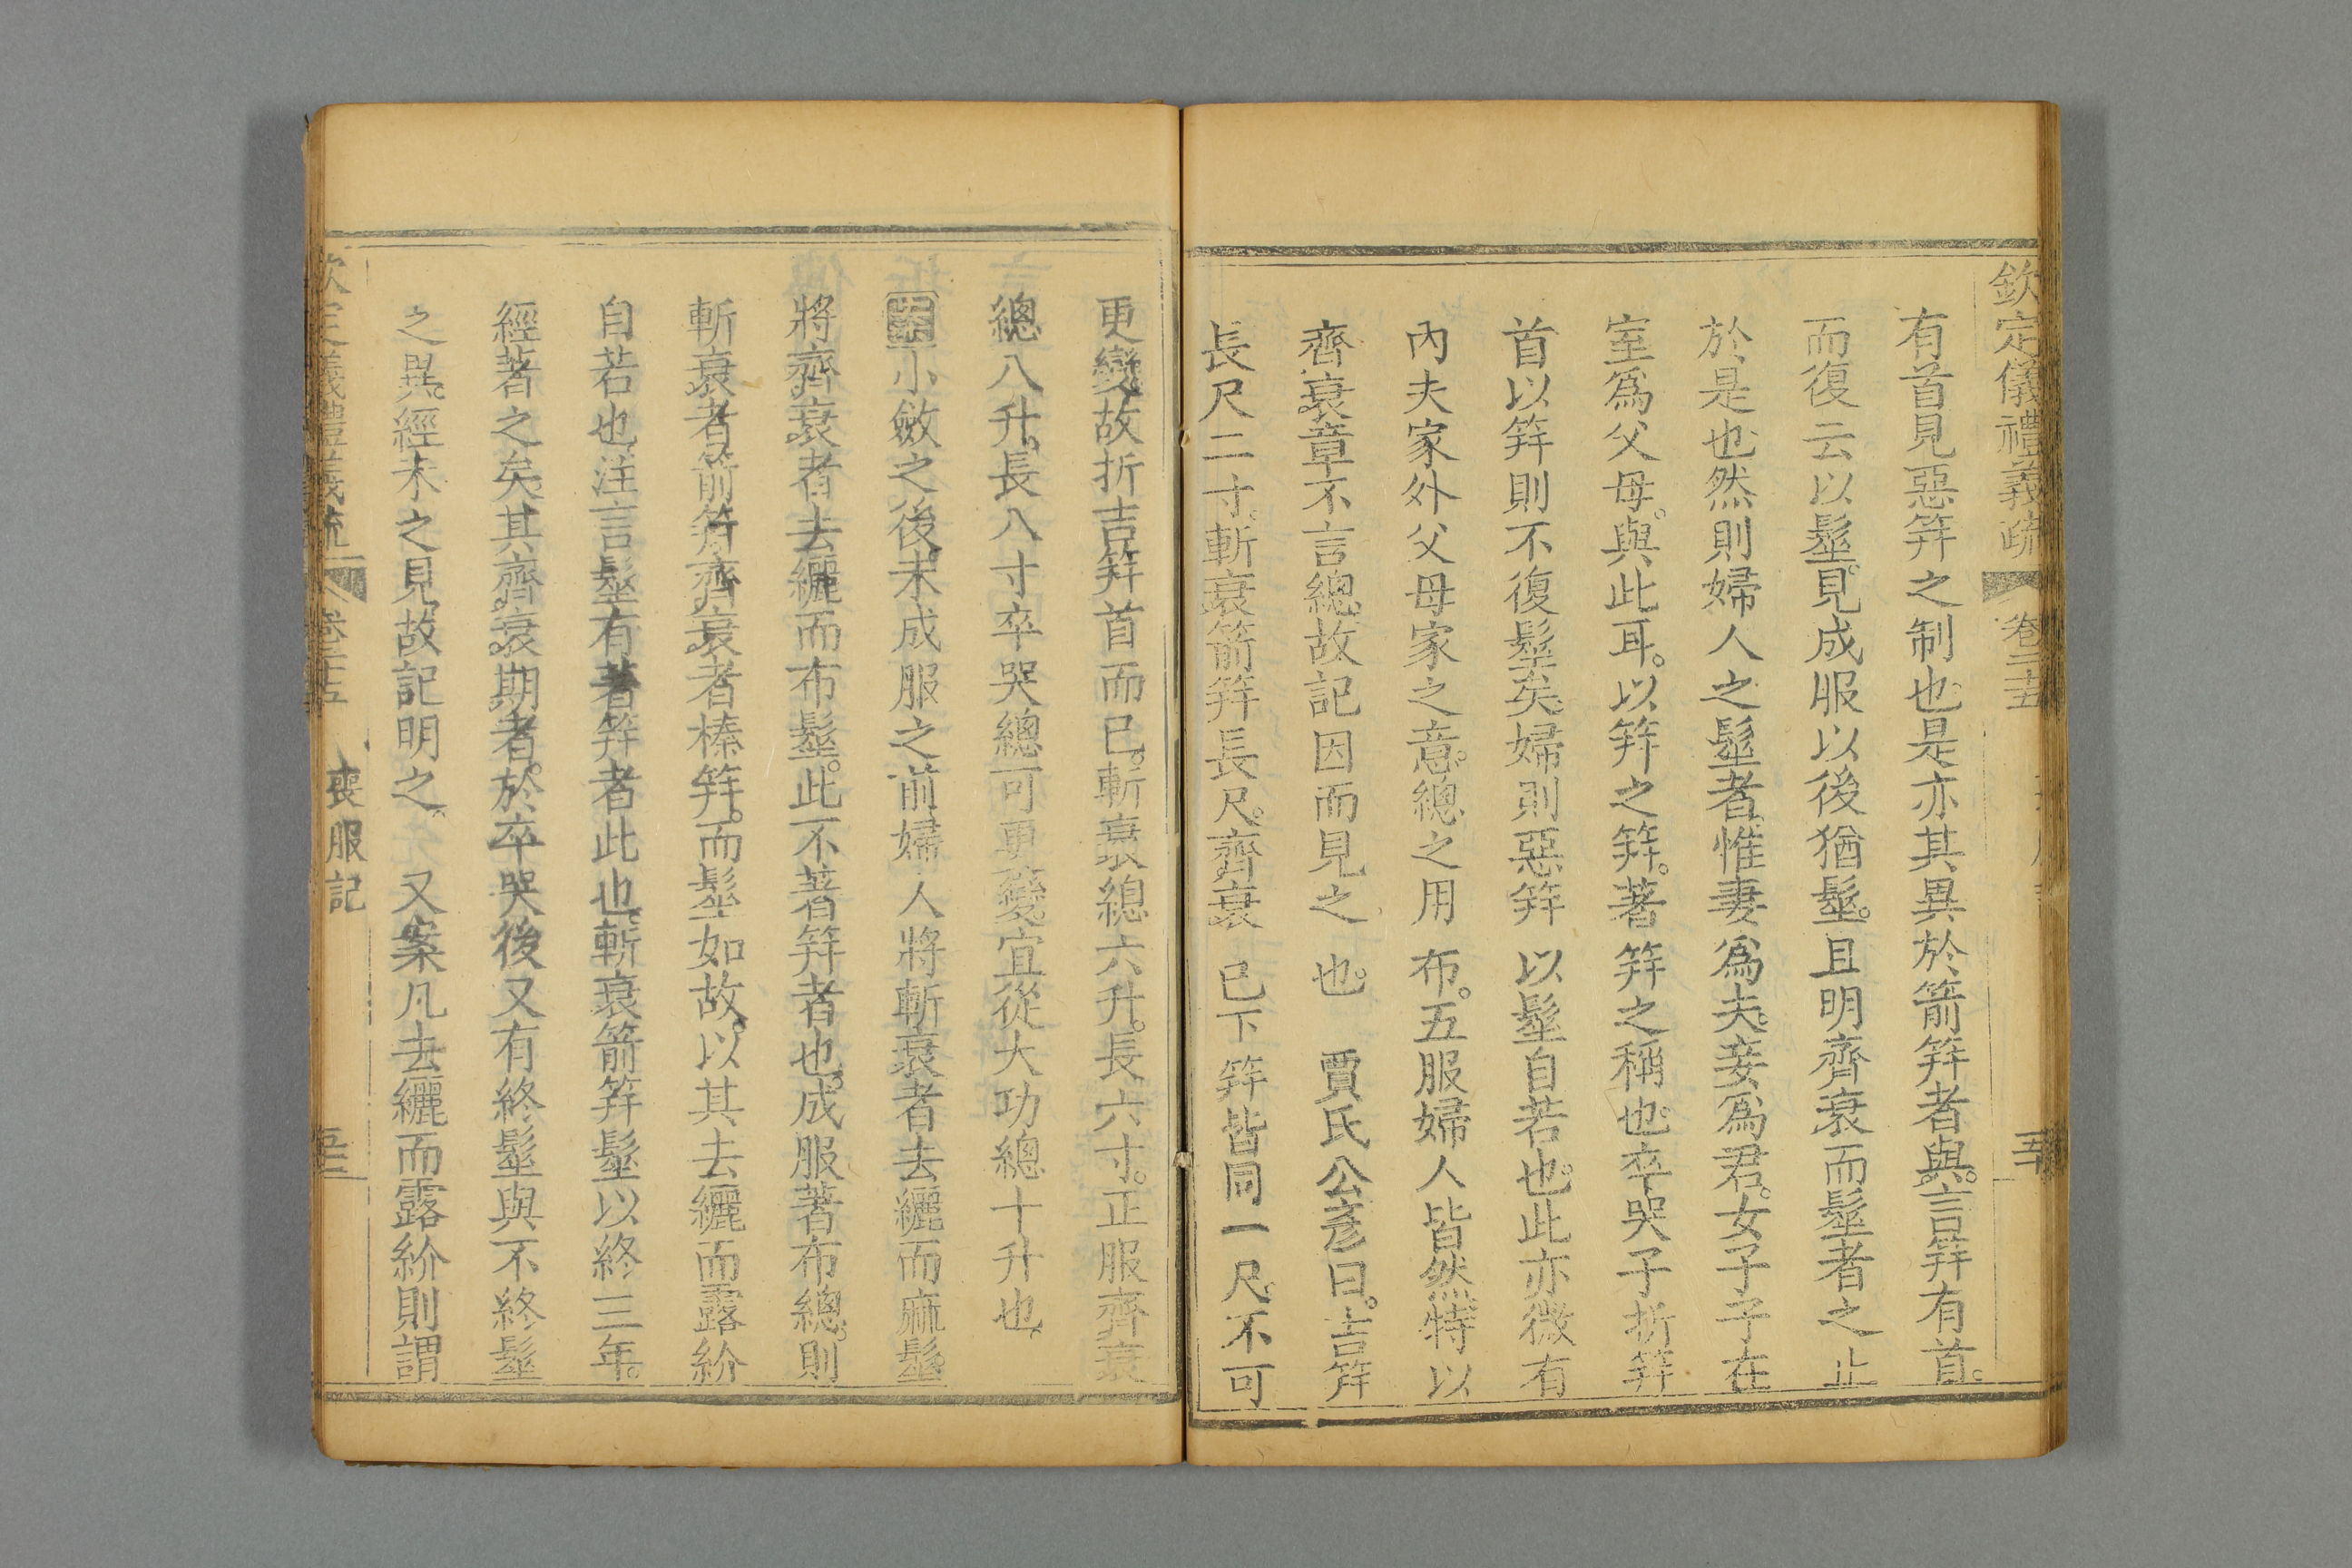 欽定儀禮義疏 卷二十五
有首見惡笄之制也是亦其異於箭笄者與言笄有首。
而復云以髽見成服以後猶髽。且明齊衰而髽者之止
於是也然則婦人之髽者惟妻爲夫妾爲君。女子子在
室爲父母。與此耳。以笄之笄。著笄之稱也卒哭子折笄
首以笄則不復髽矣。婦則惡笄以髽自若也。此亦微有
內夫家外父母家之意。總之用布。五服婦人皆然特以
齊衰章不言總。故記因而見之也。 賈氏公彥曰。吉笄
長尺二寸。斬衰箭笄長尺。齊衰已下笄皆同一尺。不可
更變故折吉笄首而已。斬衰總六升。長六寸。正服齊衰
總八升。長八寸卒哭總可更變。宜從大功總十升也
案小斂之後。未成服之前婦人將斬衰者去纚而麻髽
將齊衰者去纚而布髽。此不著笄者也成服著布總。則
斬衰者箭笄齊衰者榛笄。而髽如故。以其去纚而露紒
自若也注言髽有著笄者此也斬衰箭笄髽以終三年。
經著之矣。其齊衰期者。於卒哭後又有終髽與不終髽
之異。經未之見故記明之 又案凡去纚而露紒則謂
喪服記